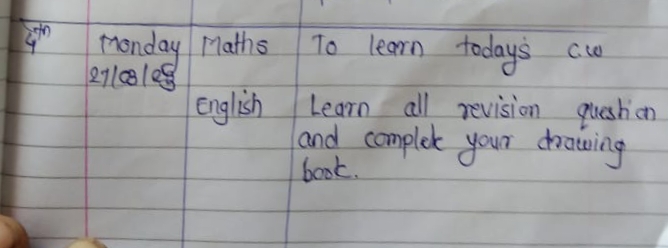 4th Monday Maths To learn today's c.w
English Learn all revision question
and complete your drawing
book.